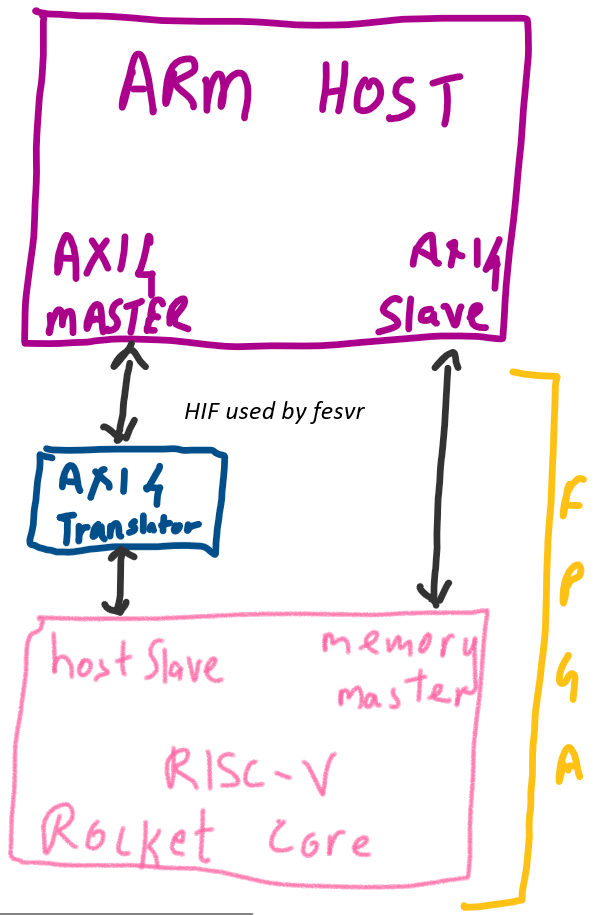 ARM HOST
AXI4
MASTER
AXI4
Slave
HIF used by fesvr
AXI4
Translator
host Slave
memory
master
RISC-V
Rocket Core
FPGA